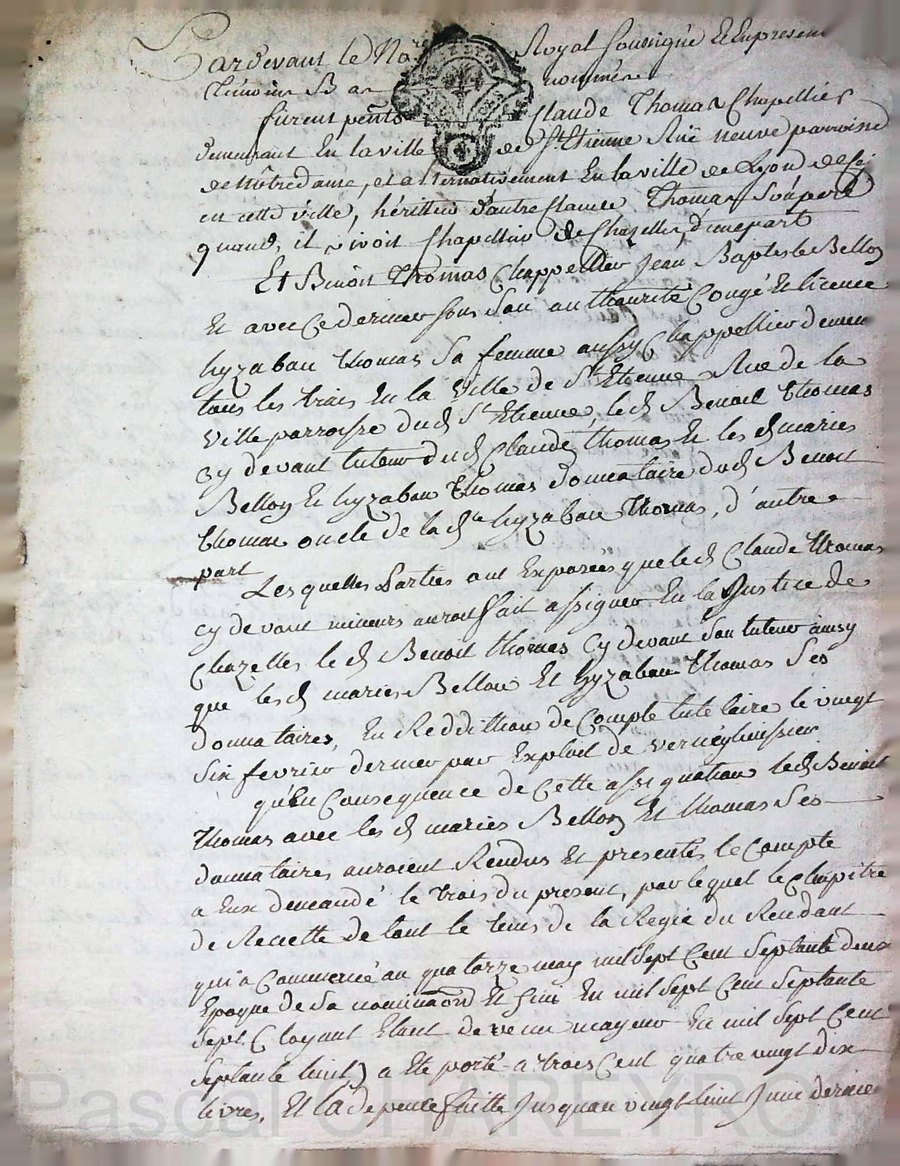 Pardevant le No Royal soussigné Et En presen
témoins B as nommés
furent pnts Claude Thomas Chapellier
demeurant En la ville de St Etienne Ruë neuve parroisse
de nôtre dame, et alternativement En la ville de Lyon de
en cette ville, héritier d'autre Claude Thomas Son père
quand il vivoit Chapellier de Chazelles, d'une part
Et Benoit Thomas Chappellier Jean Baptiste Bellon
Et avec ce dernier sous Son authourité Congé Et licence
lyzabau Thomas Sa femme aussy Chappellier demeu
tous les trois En la ville de St Etienne Rue de la
ville parroisse dud St Etienne, led Benoit Thomas
cy devant tuteur dud Claude Thomas Et les d mariés
Bellon Et lyzabau Thomas donnataire dud Benoit
Thomas oncle de la dte lyzabau Thomas, d'autre
part
Les quelles Parties ont Exposées que le d Claude Thomas
cy devant mineurs auroit fait assigner En la Justice de
Chazelles le d Benoit Thomas Cy devant Son tuteur ainsy
que les d mariés Bellon Et lyzabau Thomas Ses
donnataires, En Reddition de Compte tutelaire le vingt
Six fevrier dernier par Exploit de
qu'En Consequence de Cette assignation le d Benoit
Thomas avec les d mariés Bellon Et Thomas Ses
donnataires auroient Rendus Et presentés le Compte
a Eux demandé le trois du present, par lequel le Chapitre
de Recette de tout le tems de la Regie du Rendant
qui a Commencé au quatorze may mil Sept Cent Septante deux
Epoque de Sa nominaon Et fini En mil Sept Cent Septante
Sept C loyant Etant devenu mayeur En mil Sept Cent
Septante huit) a Eté porté a trois Cent quatre vingt dix
livres, Et la depence faitte Jusqu'au vingt huit Juin dernier
Pascal CHAREYRON